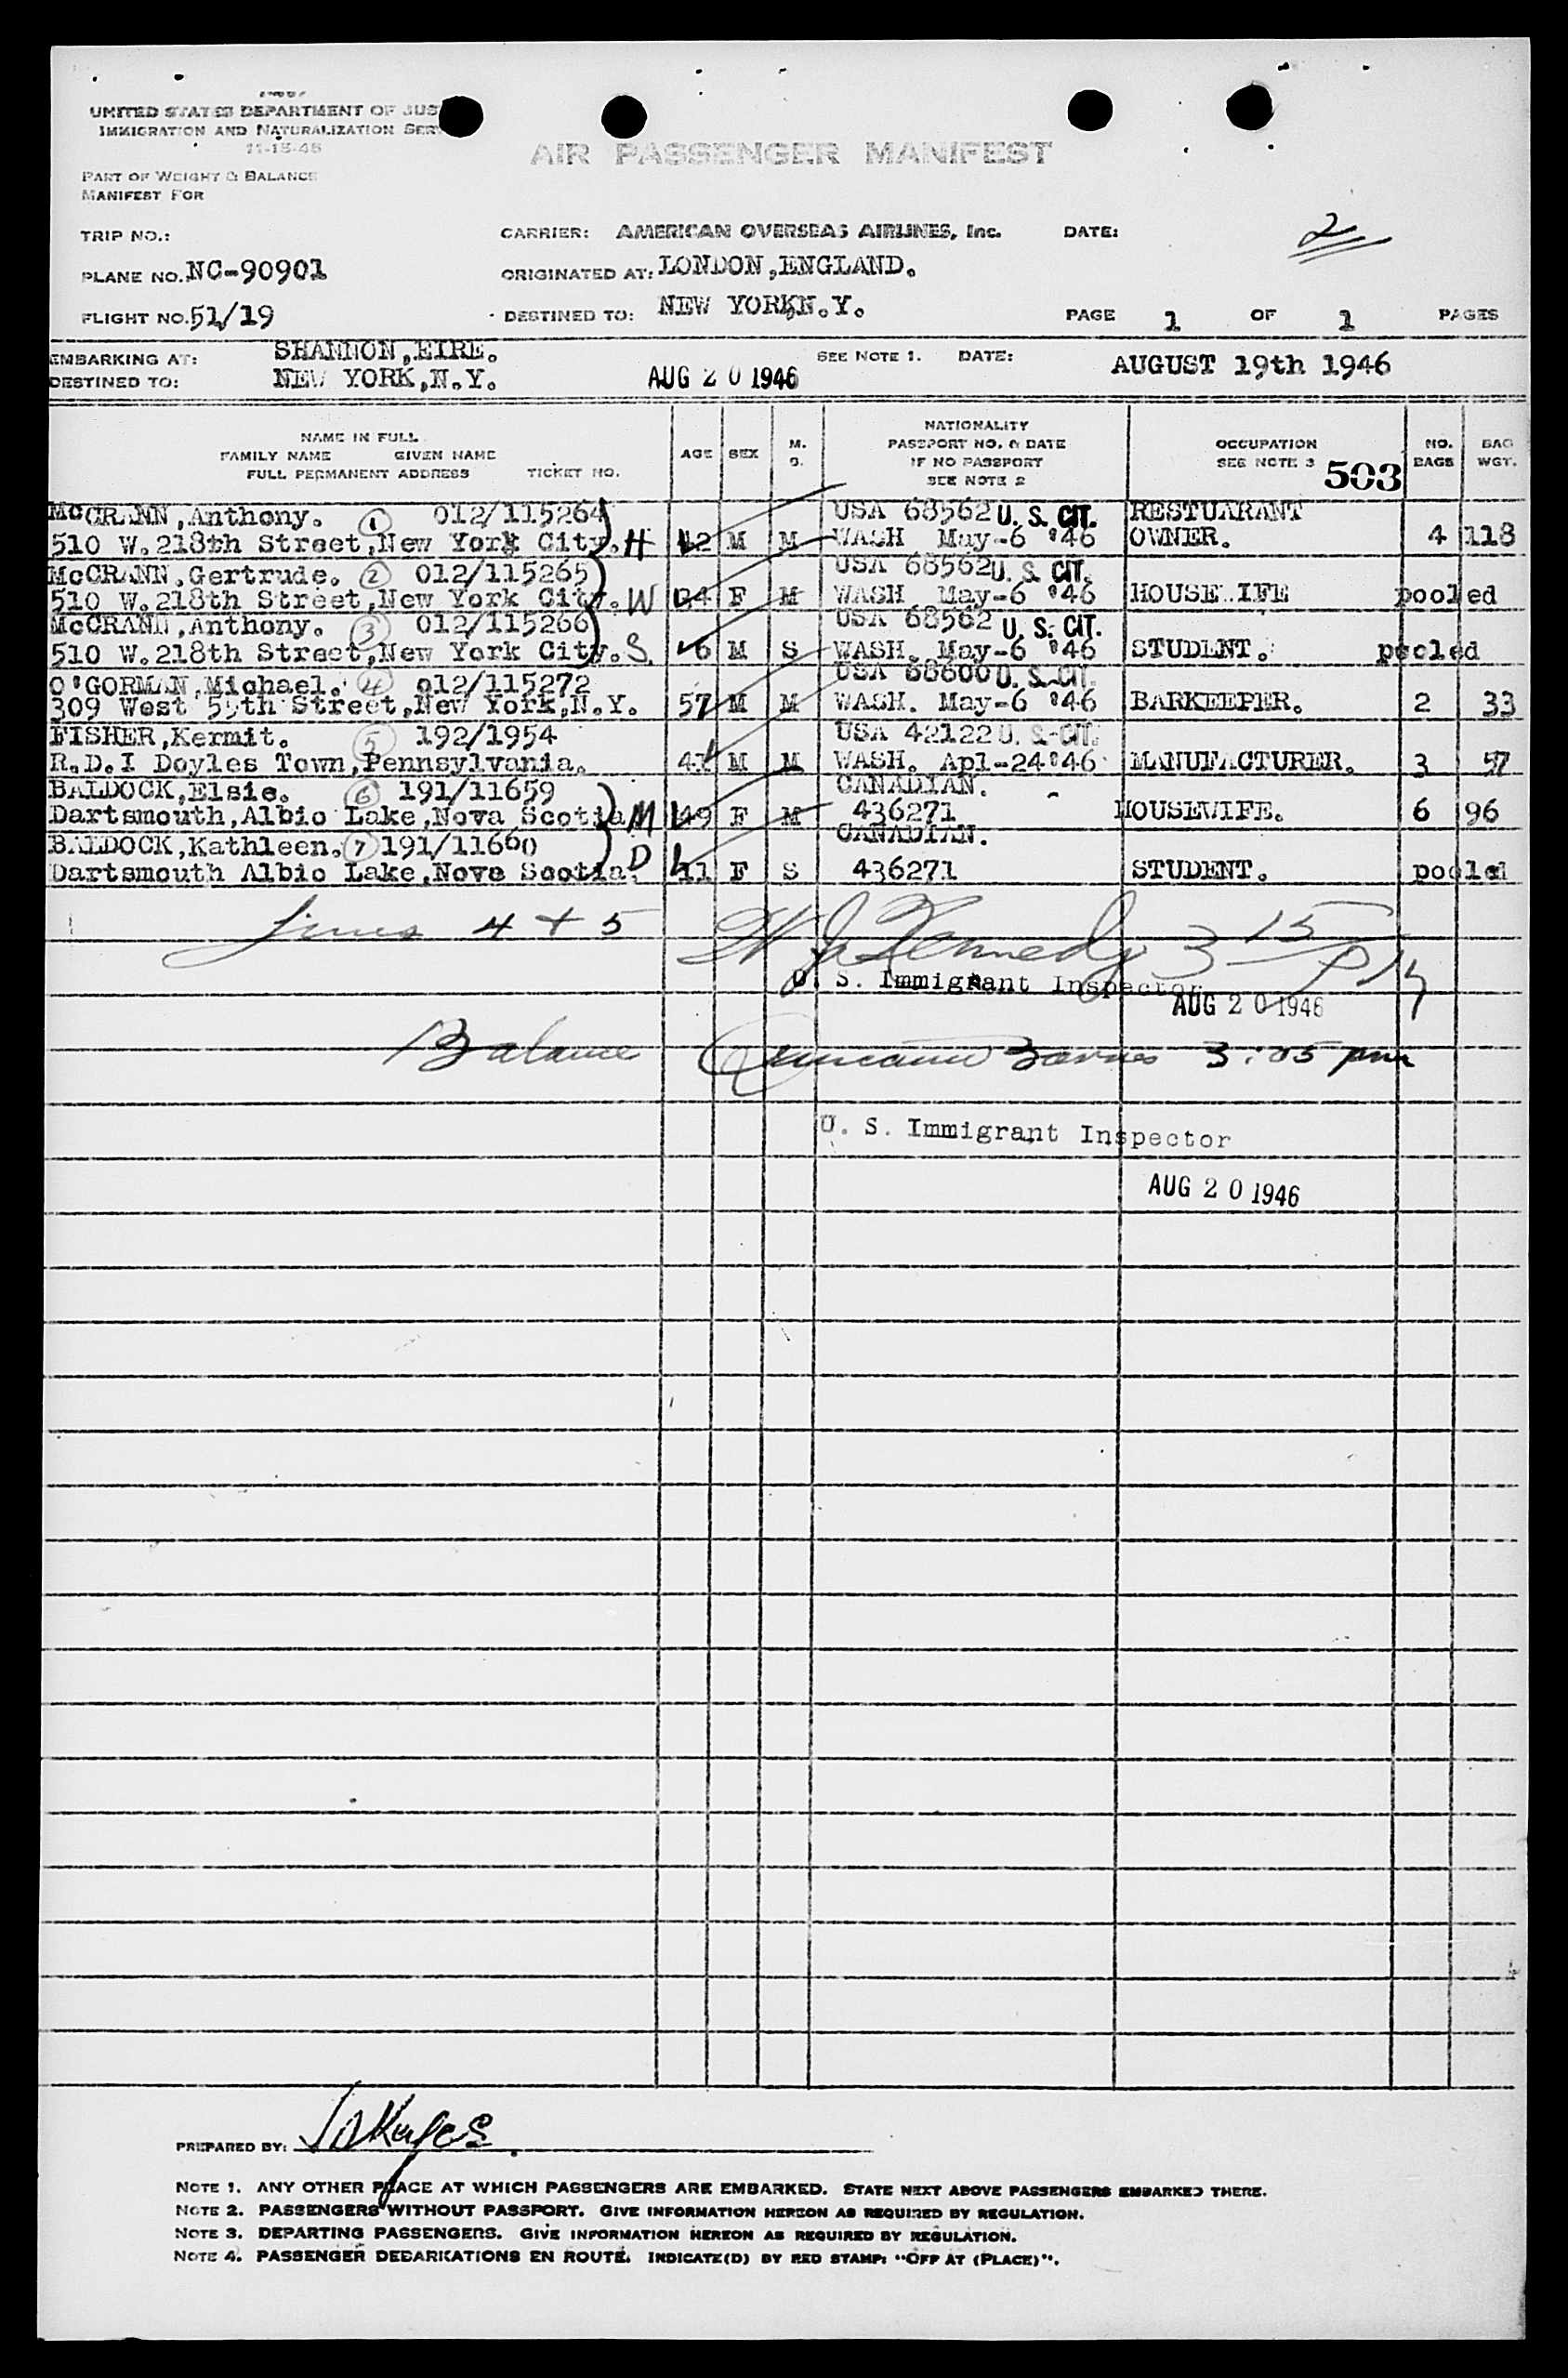 UNITED STATES DEPARTMENT OF JUS
IMMIGRATION AND NATURALIZATION SERV
11-15-45
AIR PASSENGER MANIFEST
PART OF WEIGHT & BALANCE
MANIFEST FOR
TRIP NO.: CARRIER: AMERICAN OVERSEAS AIRLINES, Inc. DATE: 2
PLANE NO. NC-90901 ORIGINATED AT: LONDON, ENGLAND.
FLIGHT NO. 51/19 DESTINED TO: NEW YORK, N.Y. PAGE 1 OF 1 PAGES
EMBARKING AT: SHANNON, EIRE. SEE NOTE 1. DATE: AUGUST 19th 1946
DESTINED TO: NEW YORK, N.Y. AUG 20 1946
NAME IN FULL
FAMILY NAME GIVEN NAME
FULL PERMANENT ADDRESS TICKET NO. AGE SEX M. S. NATIONALITY PASSPORT NO. & DATE IF NO PASSPORT SEE NOTE 2 OCCUPATION SEE NOTE 3 503 NO. BAGS BAG WGT.
McCRANN, Anthony. 1 012/115264 USA 68562 U. S. CIT. RESTUARANT
510 W. 218th Street, New York City. H 42 M M WASH May-6 '46 OWNER. 4 118
McCRANN, Gertrude. 2 012/115265 USA 68562 U. S. CIT.
510 W. 218th Street, New York City. W 34 F M WASH May-6 '46 HOUSEWIFE pooled
McCRANN, Anthony. 3 012/115266 USA 68562 U. S. CIT.
510 W. 218th Street, New York City. S. 6 M S WASH. May-6 '46 STUDENT. pooled
O'GORMAN, Michael. 4 012/115272 USA 68600 U. S. CIT.
309 West 55th Street, New York, N.Y. 57 M M WASH. May-6 '46 BARKEEPER. 2 33
FISHER, Kermit. 5 192/1954 USA 42122 U. S. CIT.
R.D.I Doyles Town, Pennsylvania. 41 M M WASH. Apl-24 '46 MANUFACTURER. 3 57
BALDOCK, Elsie. 6 191/11659 CANADIAN.
Dartsmouth, Albio Lake, Nova Scotia M 49 F M 436271 HOUSEWIFE. 6 96
BALDOCK, Kathleen. 7 191/11660 CANADIAN.
Dartsmouth Albio Lake, Nova Scotia. D 11 F S 436271 STUDENT. pooled
Lines 4 + 5 W J Kennedy 3 15 PM
U. S. Immigrant Inspector
AUG 20 1946
Balance Barnes 3:05 pm
U. S. Immigrant Inspector
AUG 20 1946
PREPARED BY:
NOTE 1. ANY OTHER PLACE AT WHICH PASSENGERS ARE EMBARKED. STATE NEXT ABOVE PASSENGERS EMBARKED THERE.
NOTE 2. PASSENGERS WITHOUT PASSPORT. GIVE INFORMATION HEREON AS REQUIRED BY REGULATION.
NOTE 3. DEPARTING PASSENGERS. GIVE INFORMATION HEREON AS REQUIRED BY REGULATION.
NOTE 4. PASSENGER DEBARKATIONS EN ROUTE. INDICATE(D) BY RED STAMP: "OFF AT (PLACE)".